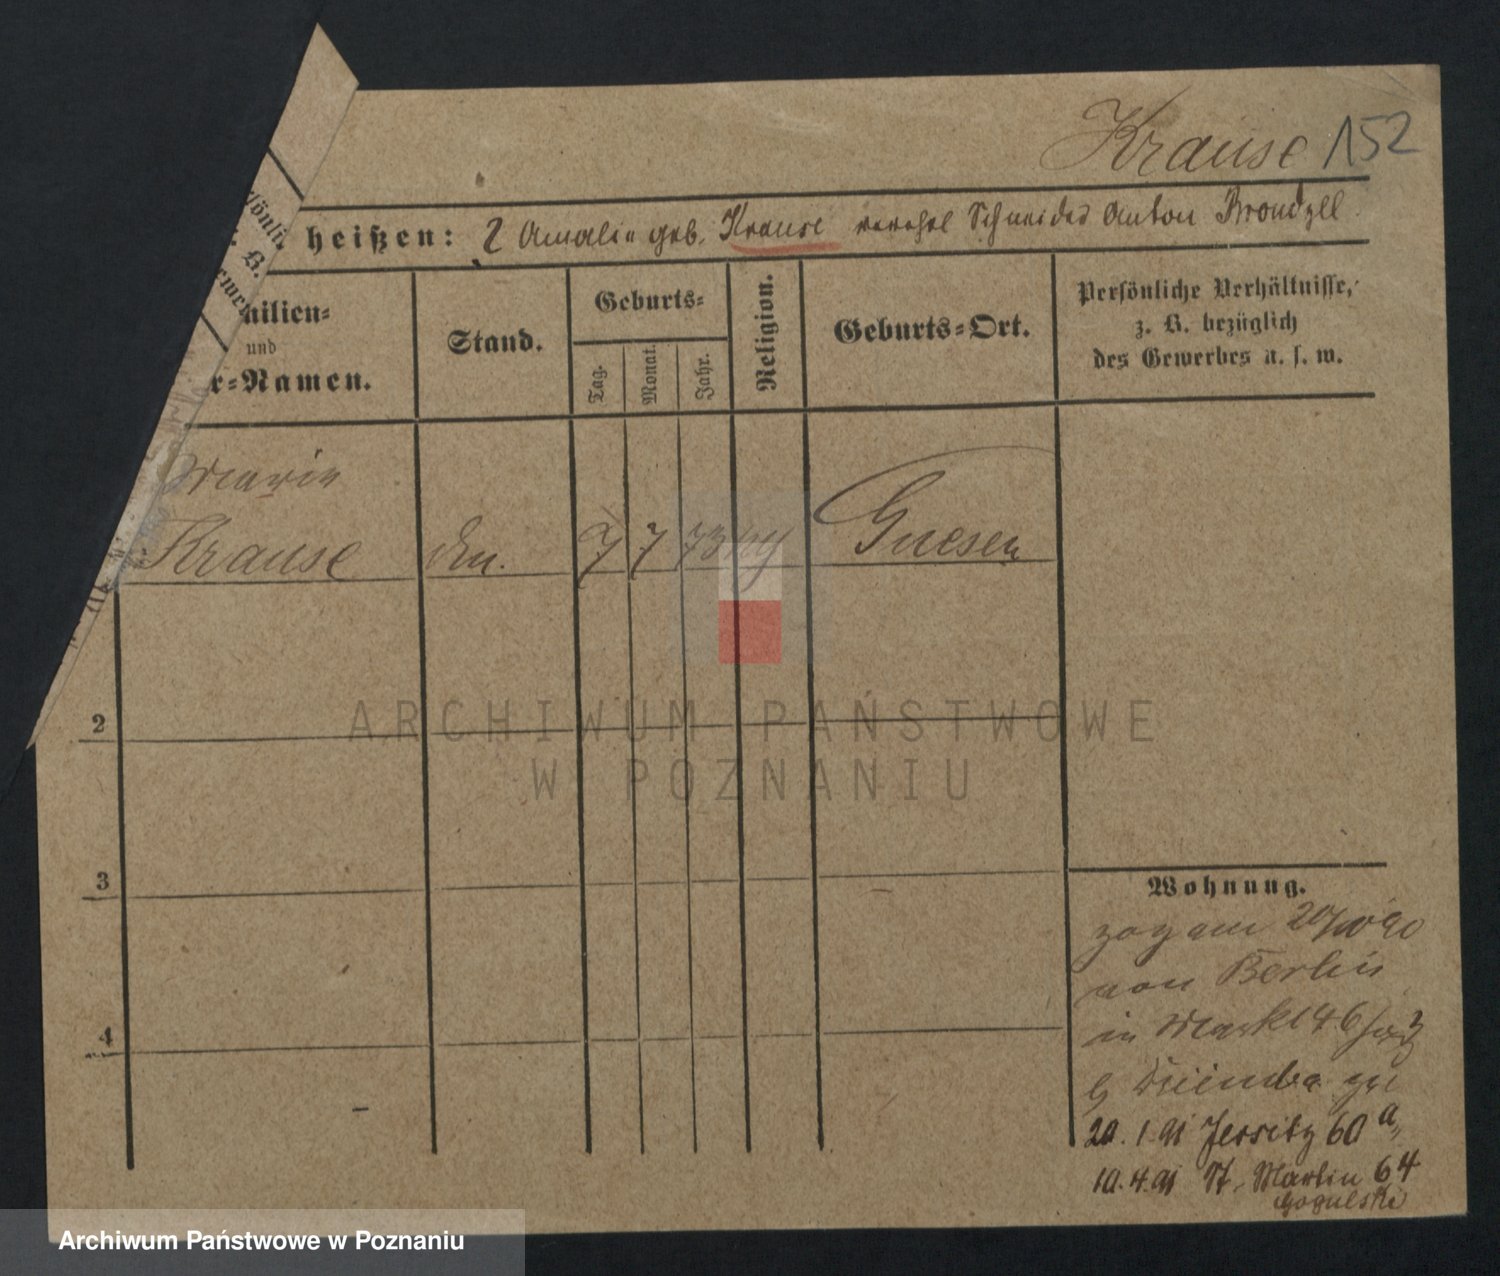 Krause 152
heißen: 2 Amalie geb. Krause verehel Schneider Anton Brondzel
milien=
und
r=Namen.
Stand.
Geburts=
Tag.
Monat.
Jahr.
Religion.
Geburts=Ort.
Persönliche Verhältnisse,
z. B. bezüglich
des Gewerbes u. s. w.
Marie
Krause
7 7 73
Gnesen
2
3
4
Wohnung.
zog am 20/10 90
von Berlin
in Markt 46
zu
20. 1 91 Jersitz 60 a,
10. 4. 91 St. Martin 64
Gogulski
ARCHIWUM PAŃSTWOWE
W POZNANIU
Archiwum Państwowe w Poznaniu